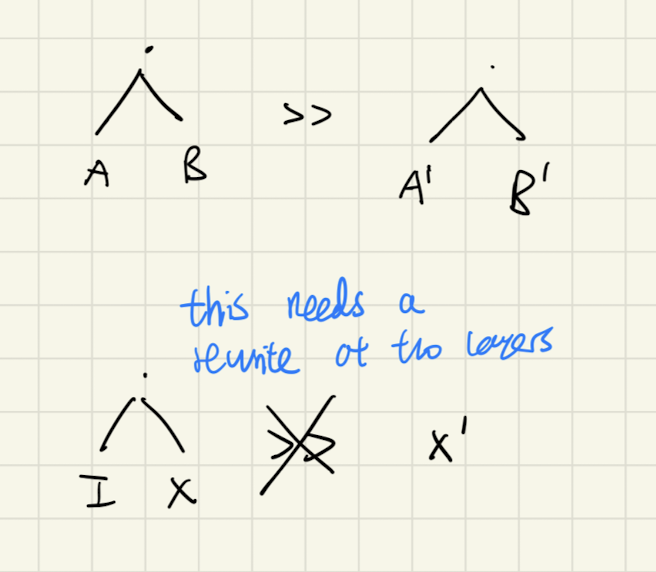 A B >> A' B'
this needs a
rewrite at two layers
I X >> X'